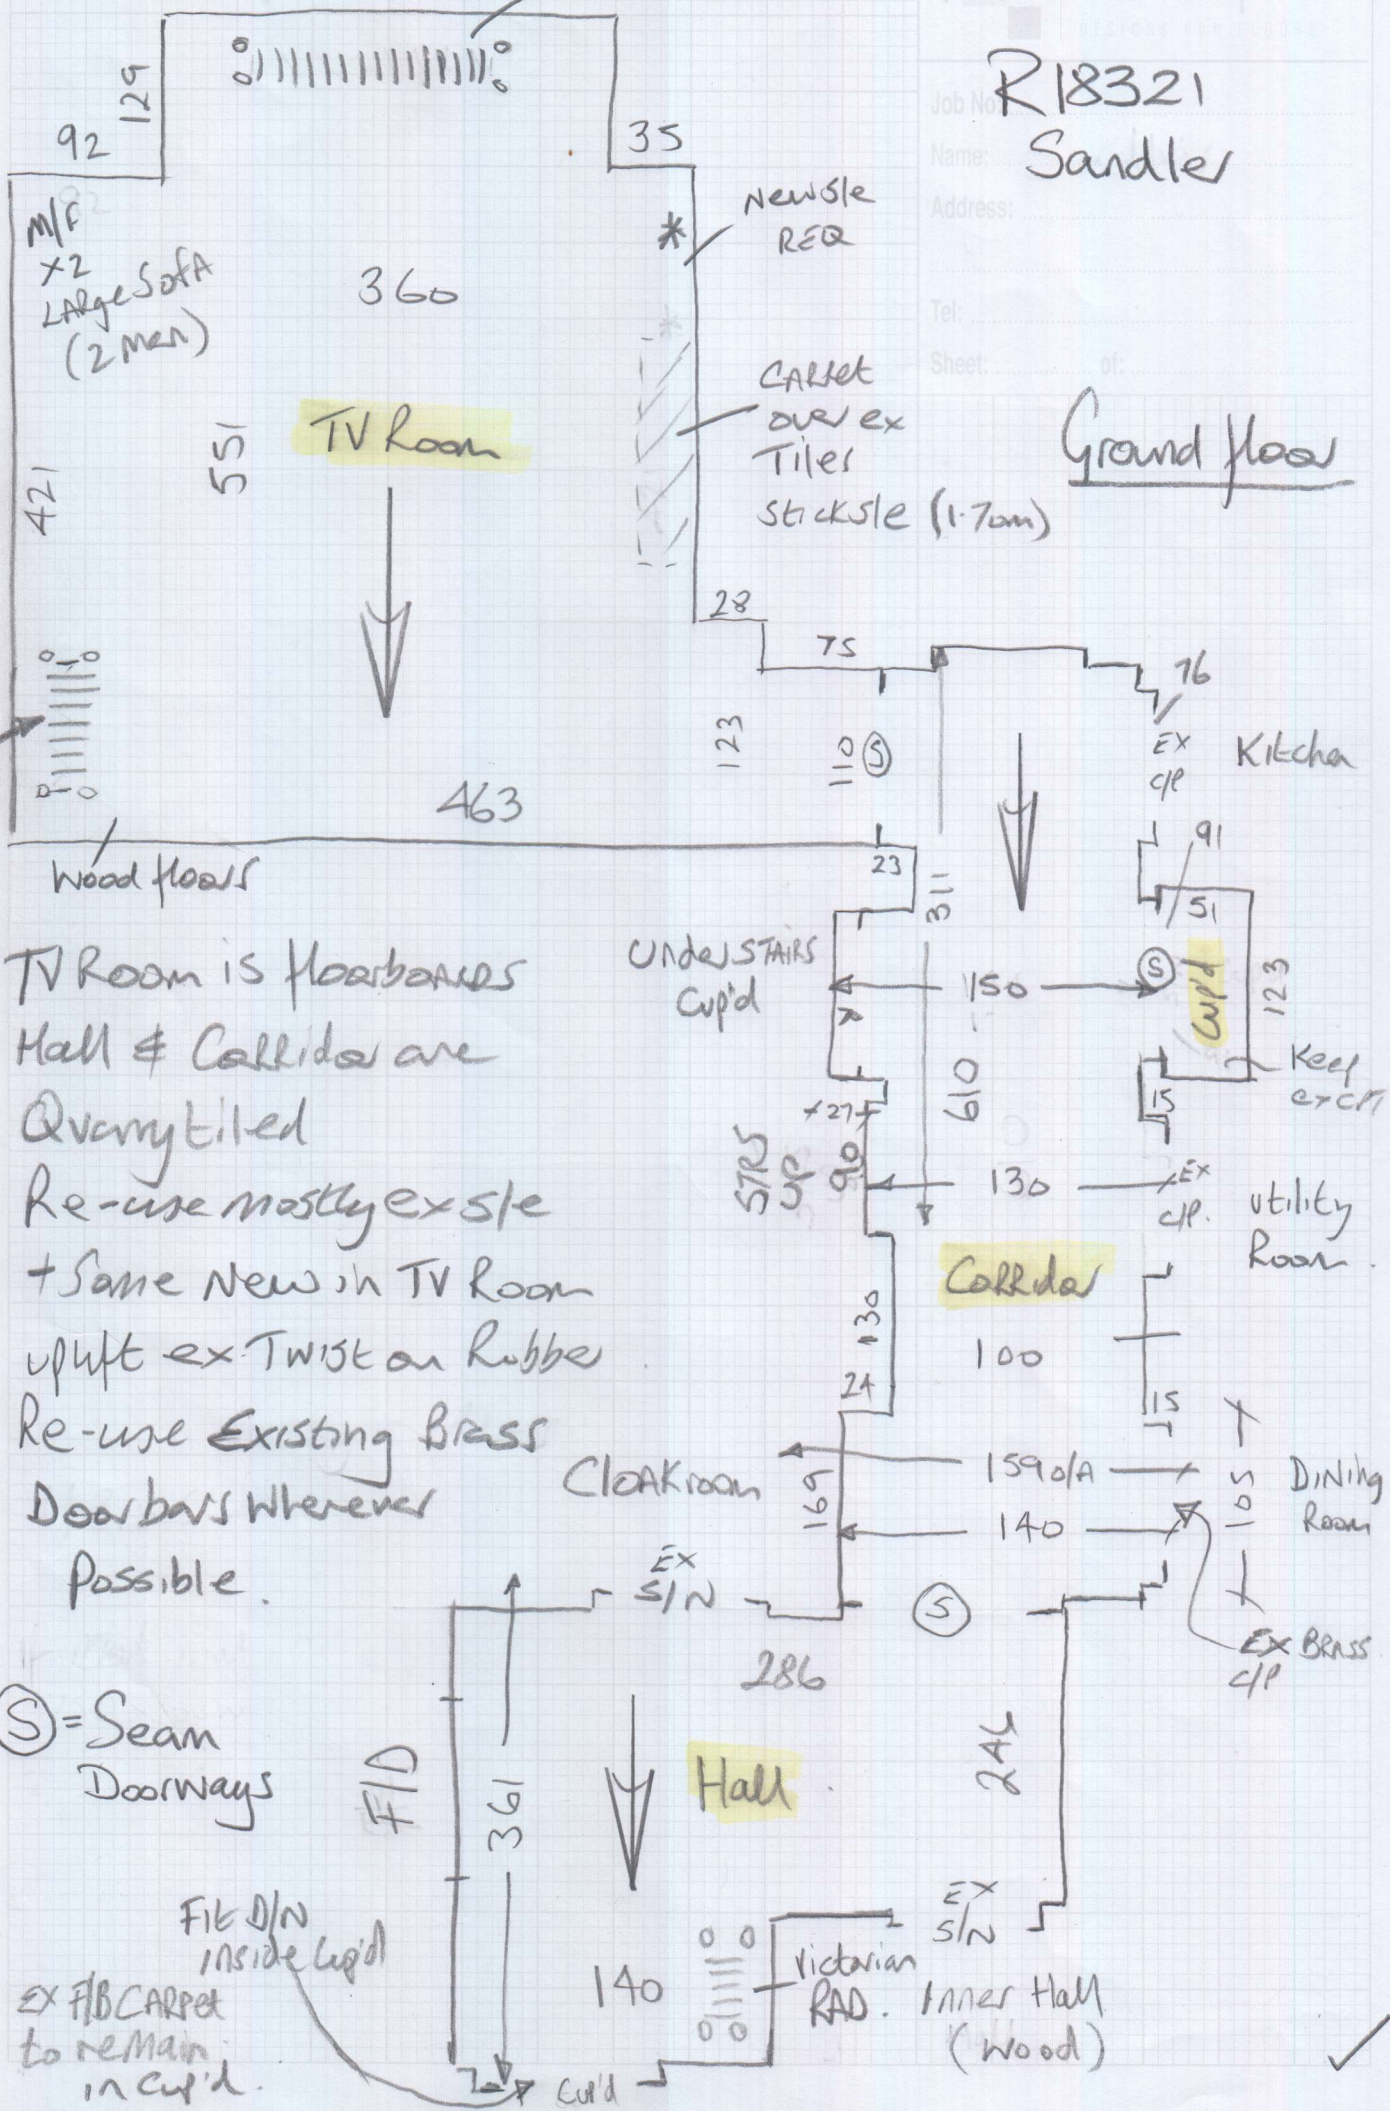 R18321
Sandler
Job No:
Name:
Address:
Tel:
Sheet: of:
Ground floor
129
92
35
M/F
x2
LARge SofA
(2 Men)
360
551
421
TV Room
New s/e
REQ
CARPet
over ex
Tiles
Stick s/e (1.70m)
28
75
123
110
S
463
Wood floors
76
EX
C/P
Kitchen
23
311
91
51
UnderSTAIRS
Cup'd
150
S
Cup'd
123
Keep
ex CPT
27
610
15
STRS
UP
90
130
EX
C/P.
Utility
Room.
Corridor
130
100
24
15
Cloakroom
159 o/A
105
Dining
Room
169
140
EX
S/N
S
EX BRASS
C/P
TV Room is floorboards
Hall & Corridor are
Quarry tiled
Re-use mostly ex s/e
+ Some New in TV Room
uplift ex Twist on Rubber
Re-use Existing Brass
Doorbars Wherever
Possible.
S = Seam
Doorways
286
F/D
361
Hall
246
EX
S/N
Fit D/N
inside Cup'd
EX F/B CARPet
to remain
in Cup'd.
140
Victorian
RAD.
Inner Hall
(Wood)
Cup'd